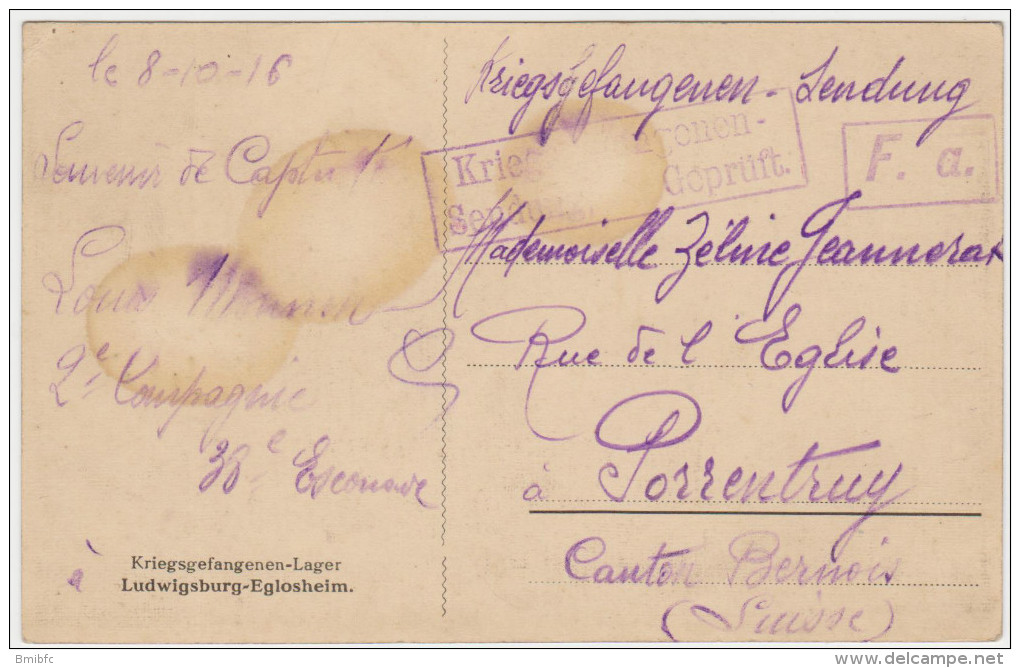 le 8-10-16
Souvenir de Captivité
Louis
2e Compagnie
38e Escouade
à
Kriegsgefangenen-Lager
Ludwigsburg-Eglosheim.
Kriegsgefangenen-Sendung
Geprüft.
F. a.
Mademoiselle Zéline Jeannerat
Rue de l'Eglise
à Porrentruy
Canton Bernois
(Suisse)
Bmibfc
delcampe.net